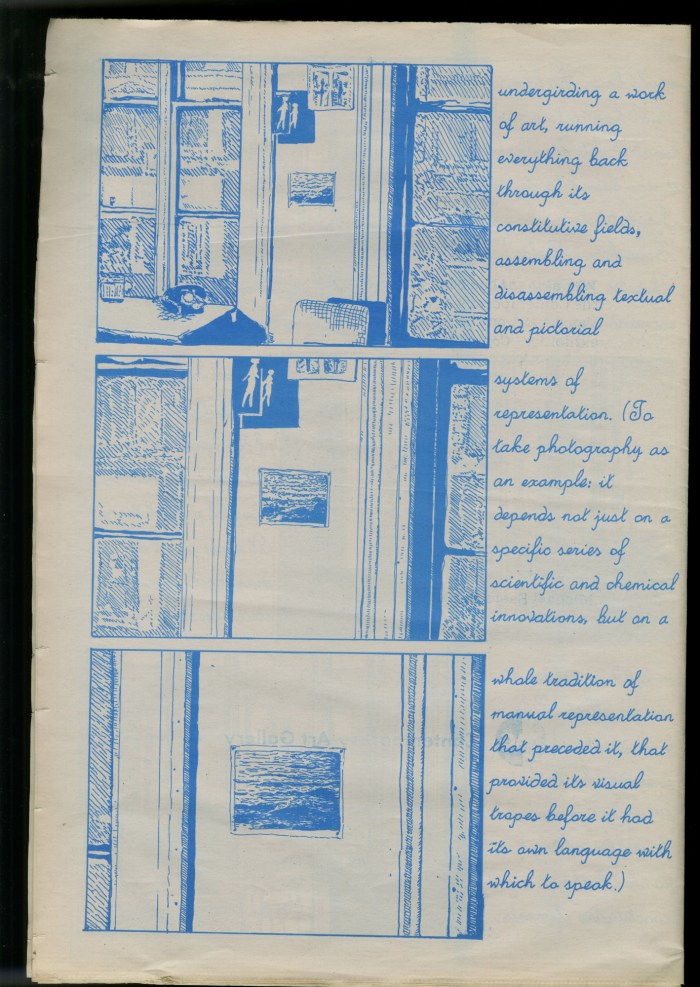 undergirding a work
of art, running
everything back
through its
constitutive fields,
assembling and
disassembling textual
and pictorial
systems of
representation. (To
take photography as
an example: it
depends not just on a
specific series of
scientific and chemical
innovations, but on a
whole tradition of
manual representation
that preceded it, that
provided its visual
tropes before it had
its own language with
which to speak.)
Art Gallery